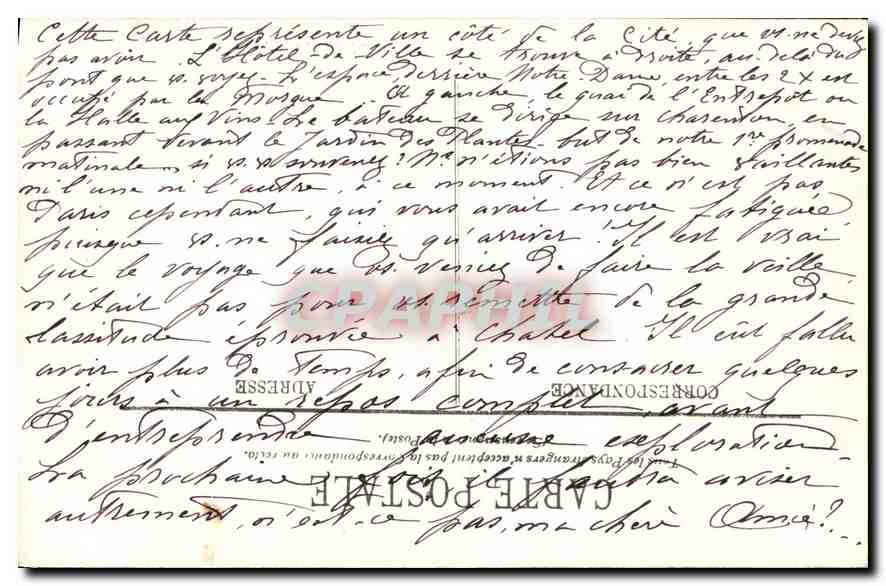 Cette Carte représente un côté de la Cité, que vs. ne devez
pas avoir. L'Hôtel-de-Ville se trouve à droite, au-delà du
pont que vs. voyez. L'espace, derrière Notre-Dame, entre les 2 X est
occupé par la Morgue. A gauche, le quai de l'Entrepôt ou
la Halle aux Vins. Le bateau se dirige sur Charenton, en
passant devant le Jardin des Plantes, but de notre 1re promenade
matinale, si vs. vs. souvenez? Ns. n'étions pas bien vaillantes
ni l'une ni l'autre, à ce moment. Et ce n'est pas
Paris cependant, qui vous avait encore fatiguée
puisque vs. ne faisiez qu'arriver! Il est vrai
que le voyage que vs. veniez de faire la veille
n'était pas pour vs. remettre de la grande
lassitude éprouvée à Chatel. Il eût fallu
avoir plus de temps, afin de consacrer quelques
jours à un repos complet, avant
d'entreprendre aucune exploration.
La prochaine fois il faudra aviser
autrement, n'est-ce pas, ma chère Amie?...
CPAPHIL
CARTE POSTALE
Tous les Pays étrangers n'acceptent pas la Correspondance au recto.
(Se renseigner à la Poste).
CORRESPONDANCE
ADRESSE